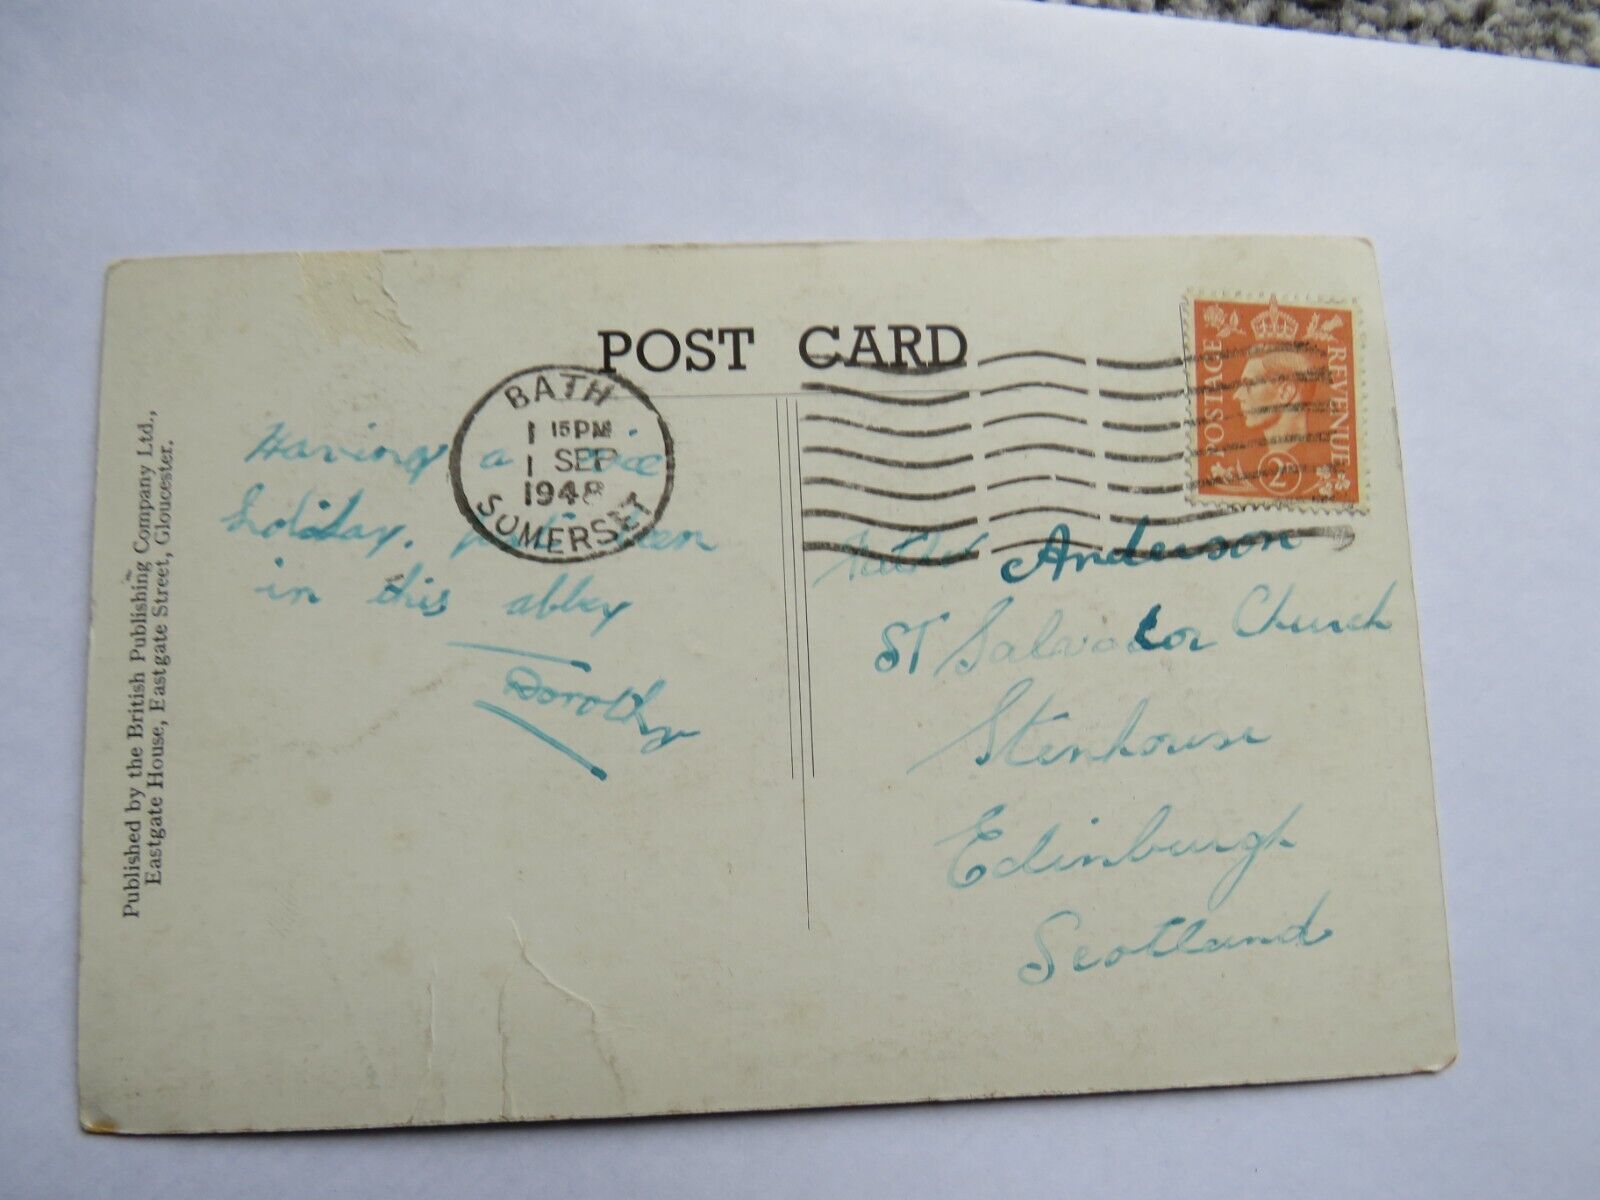 POST CARD
BATH
1 15PM
1 SEP
1948
SOMERSET
POSTAGE
REVENUE
2D
Having a nice
holiday. just been
in this abbey
Dorothy
Father Anderson
ST Salvador Church
Stenhouse
Edinburgh
Scotland
Published by the British Publishing Company Ltd.,
Eastgate House, Eastgate Street, Gloucester.